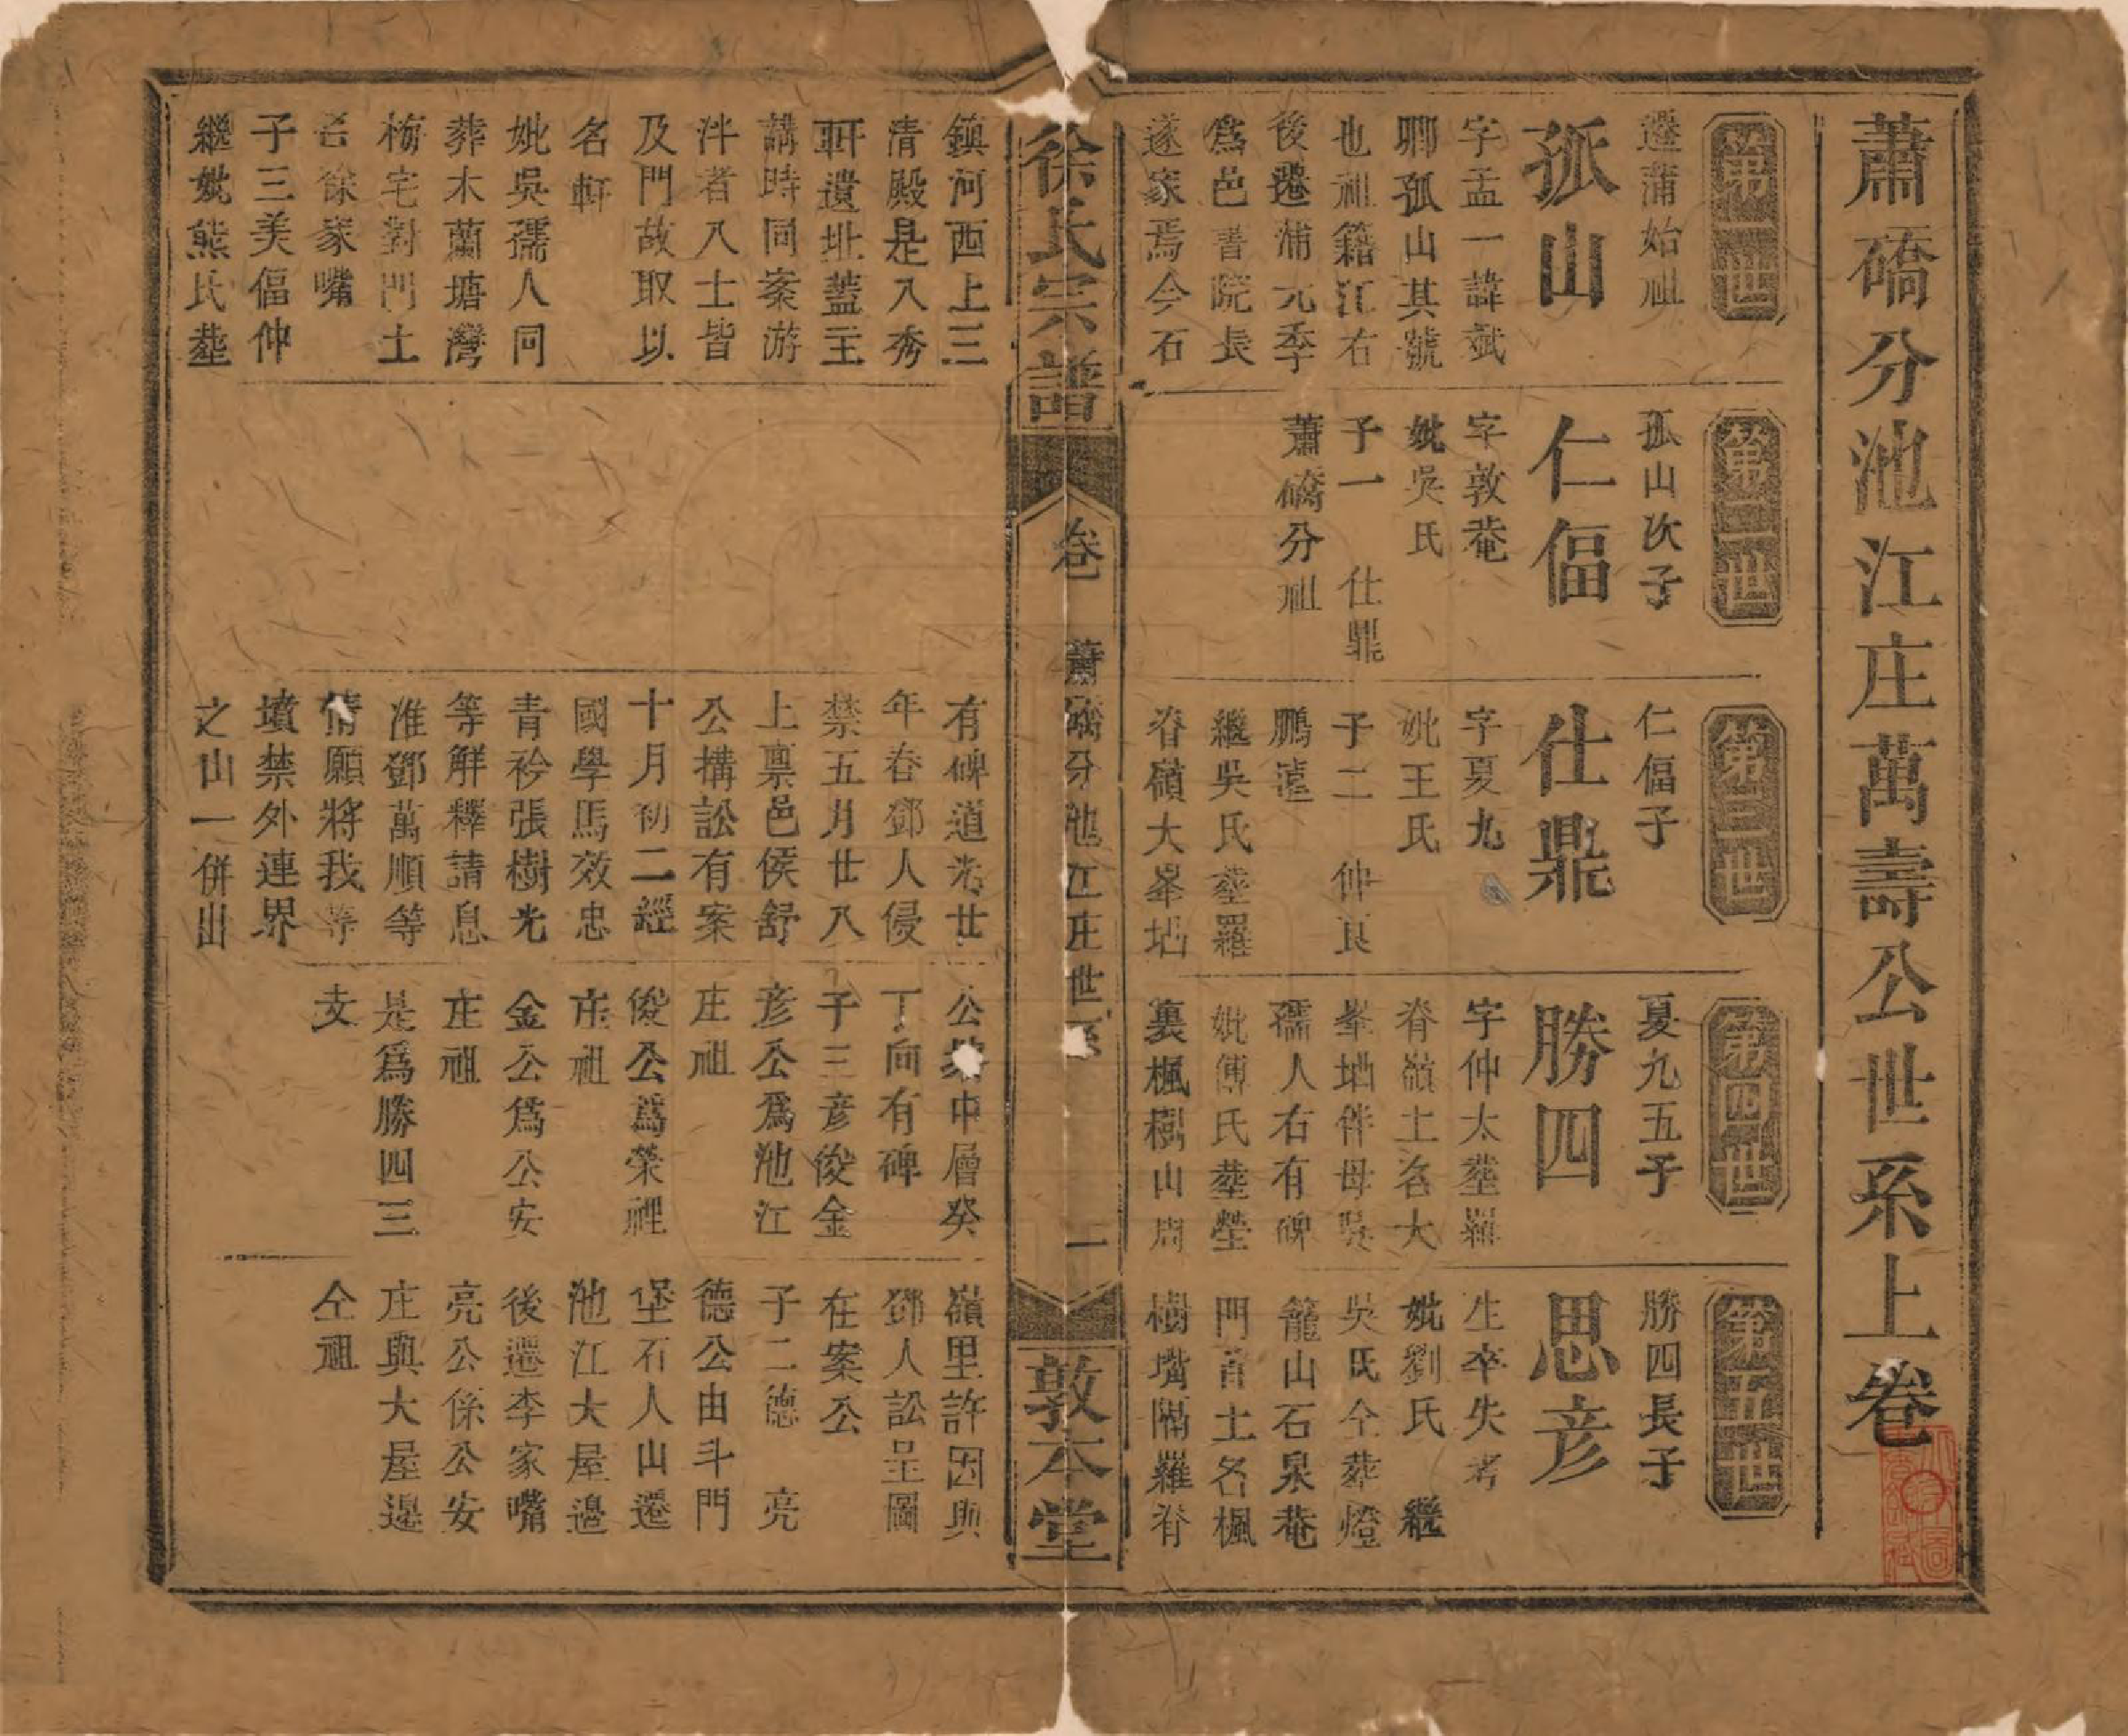 蕭礄分池江庄萬壽公世系上卷
第一世
遷蒲始祖
孤山
字孟一諱斌
聊孤山其號
也祖籍江右
後遷蒲元季
為邑書院長
遂家焉今石
第二世
孤山次子
仁偪
字敦菴
妣吳氏
子一 仕鼎
蕭礄分祖
第三世
仁偪子
仕鼎
字夏九
妣王氏
子二 仲良
鵬遠
繼吳氏塟羅
脊嶺大峯坮
第四世
夏九五子
勝四
字仲太塟羅
脊嶺土名大
峯坮伴母吳
孺人右有碑
妣傅氏塟塋
裏楓樹山周
第五世
勝四長子
思彦
生卒失考
妣劉氏 繼
吳氏仝葬燈
籠山石泉菴
門首土名楓
樹嘴隔羅脊
徐氏宗譜
卷 蕭礄分池江庄世系
一
敦本堂
鎮河西上三
清殿是八秀
軒遺址蓋主
講時同案游
泮者八士皆
及門故取以
名軒
妣吳孺人同
葬木蘭塘灣
梅宅對門土
名徐家嘴
子三美偪仲
繼妣熊氏塟
有碑道光廿
年春鄧人侵
禁五月廿八
上禀邑侯舒
公搆訟有案
十月初二經
國學馬效忠
青衿張樹光
等解釋請息
准鄧萬順等
情願將我等
墳禁外連界
之山一併出
公墳中層癸
丁向有碑
子三彦俊金
彦公為池江
庄祖
俊公為榮裡
庄祖
金公為公安
庄祖
是為勝四三
支
嶺里許因與
鄧人訟呈圖
在案公
子二德 亮
德公由斗門
堡石人山遷
池江大屋邊
後遷李家嘴
亮公係公安
庄與大屋邊
仝祖